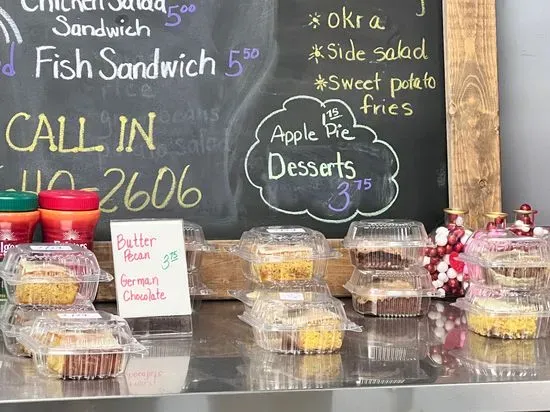 Chicken Salad 5.00
Sandwich
Fish Sandwich 5.50
* Okra
* Side salad
* Sweet potato
fries
CALL IN
40-2606
Apple Pie 1.75
Desserts
3.75
Butter
Pecan 3.75
German
Chocolate